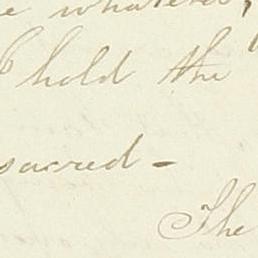 whatever,
I hold the
sacred -
The